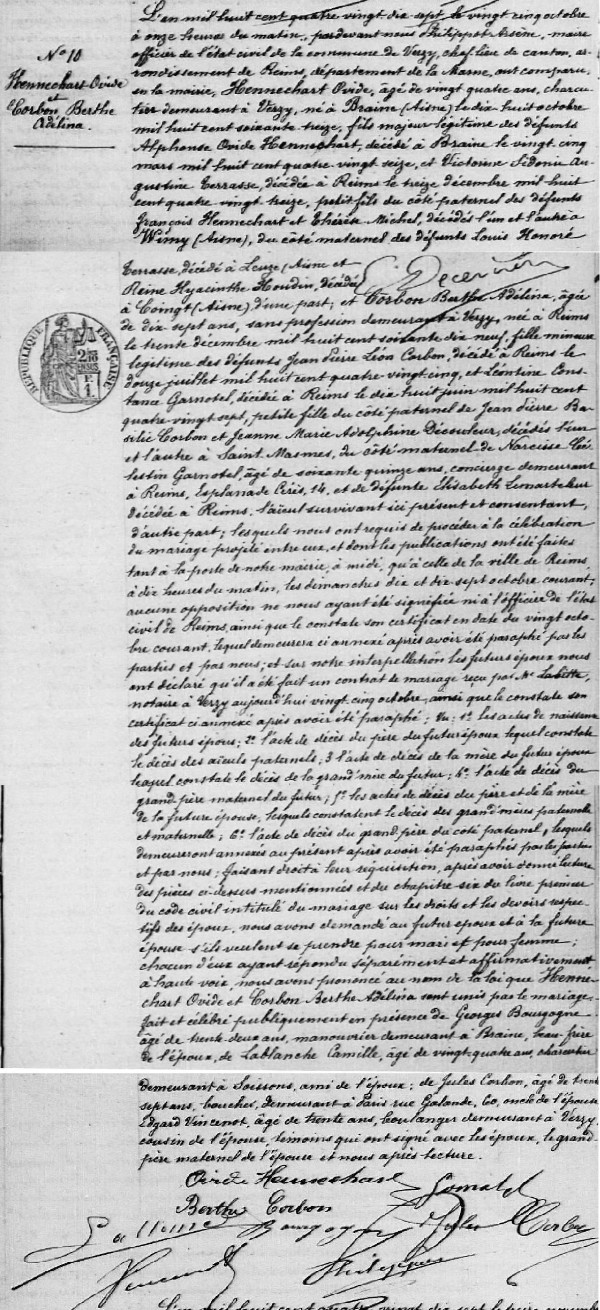 N° 10
Hennechart Ovide
et
Corbon Berthe
Adélina.
L'an mil huit cent quatre vingt dix sept le vingt cinq octobre
à onze heures du matin, pardevant nous Philippot Arsène, maire
officier de l'état civil de la commune de Verzy, chef lieu de canton, ar-
rondissement de Reims, département de la Marne, ont comparu
en la mairie, Hennechart Ovide, âgé de vingt quatre ans, charcu-
tier demeurant à Verzy, né à Braine (Aisne) le dix huit octobre
mil huit cent soixante treize, fils majeur légitime des défunts
Alphonse Ovide Hennechart, décédé à Braine le vingt cinq
mars mil huit cent quatre vingt seize, et Victorine Sidonie Au-
gustine Terrasse, décédée à Reims le treize décembre mil huit
cent quatre vingt treize, petit fils du côté paternel des défunts
François Hennechart et Thérèse Michel, décédés l'un et l'autre à
Wimy (Aisne), du côté maternel des défunts Louis Honoré
Terrasse, décédé à Leuze (Aisne et
Reine Hyacinthe Houdin, décédée
à Coingt (Aisne) d'une part; et Corbon Berthe Adélina, âgée
de dix sept ans, sans profession demeurant à Verzy, né à Reims
le trente décembre mil huit cent soixante dix neuf, fille mineure
légitime des défunts Jean Pierre Léon Corbon, décédé à Reims le
douze juillet mil huit cent quatre vingt cinq, et Léontine Cons-
tance Garnotel, décédée à Reims le dix huit juin mil huit cent
quatre vingt sept, petite fille du côté paternel de Jean Pierre Ba-
silie Corbon et Jeanne Marie Adolphine Décoúleur, décédés l'un
et l'autre à Saint Masmes, du côté maternel de Narcisse Cé-
lestin Garnotel, âgé de soixante quinze ans, concierge demeurant
à Reims, Esplanade Cérès, 14, et de défunte Elisabeth Lemarteleur
décédée à Reims. l'aïeul survivant ici présent et consentant,
d'autre part; lesquels nous ont requis de procéder à la célébration
du mariage projeté entre eux, et dont les publications ont été faites
tant à la porte de notre mairie, à midi, qu'à celle de la ville de Reims
à dix heures du matin, les dimanches dix et dix sept octobre courant,
aucune opposition ne nous ayant été signifiée ni à l'officier de l'état
civil de Reims, ainsi que le constate son certificat en date du vingt octo-
bre courant, lequel demeurera ci annexé après avoir été paraphé par les
parties et par nous; et sur notre interpellation les futurs époux nous
ont déclaré qu'il a été fait un contrat de mariage reçu par Me Labitte,
notaire à Verzy aujourd'hui vingt cinq octobre, ainsi que le constate son
certificat ci annexé après avoir été paraphé; Vu: 1° les actes de naissance
des futurs époux; 2° l'acte de décès du père du futur époux lequel constate
le décès des aïeuls paternels; 3 l'acte de décès de la mère du futur époux
lequel constate le décès de la grand'mère du futur; 4° l'acte de décès du
grand père maternel du futur; 5° les actes de décès du père et de la mère
de la future épouse, lesquels constatent le décès des grand'mères paternelle
et maternelle; 6° l'acte de décès du grand père du côté paternel, lesquels
demeureront annexés au présent après avoir été paraphés par les parties
et par nous; faisant droit à leur réquisition, après avoir donné lecture
des pièces ci-dessus mentionnées et du chapitre six du livre premier
du code civil intitulé du mariage sur les droits et les devoirs respec-
tifs des époux, nous avons demandé au futur époux et à la future
épouse s'ils veulent se prendre pour mari et pour femme;
chacun d'eux ayant répondu séparément et affirmativement
à haute voix, nous avons prononcé au nom de la loi que Henne-
chart Ovide et Corbon Berthe Adélina sont unis par le mariage.
fait et célébré publiquement en présence de Georges Bourgogne
âgé de trente deux ans, manouvrier demeurant à Braine, beau-frère
de l'époux, de Lablanche Camille, âgé de vingt-quatre ans, charcutier
demeurant à Soissons, ami de l'époux; de Jules Corbon, âgé de trente
sept ans, boucher, demeurant à Paris rue Galande, 60, oncle de l'épouse
Edgard Vincenot, âgé de trente ans, boulanger demeurant à Verzy,
cousin de l'épouse, témoins qui ont signé avec les époux, le grand-
père maternel de l'épouse et nous après lecture.
Ovide Hennechart
Berthe Corbon
Bourgogne Jules Corbon
Vincenot Philippot
RÉPUBLIQUE FRANÇAISE